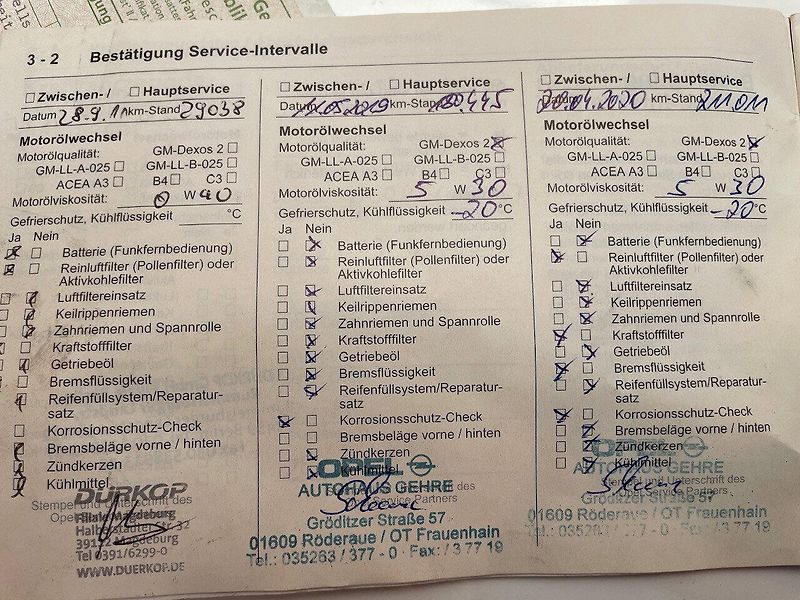 3 - 2 Bestätigung Service-Intervalle
Zwischen-/ Hauptservice
Datum 28.9.11 km-Stand 29038
Motorölwechsel
Motorölqualität: GM-Dexos 2
GM-LL-A-025 GM-LL-B-025
ACEA A3 B4 C3
Motorölviskosität: 0 W 40
Gefrierschutz, Kühlflüssigkeit °C
Ja Nein
Batterie (Funkfernbedienung)
Reinluftfilter (Pollenfilter) oder
Aktivkohlefilter
Luftfiltereinsatz
Keilrippenriemen
Zahnriemen und Spannrolle
Kraftstofffilter
Getriebeöl
Bremsflüssigkeit
Reifenfüllsystem/Reparatur-
satz
Korrosionsschutz-Check
Bremsbeläge vorne / hinten
Zündkerzen
Kühlmittel
Stempel und Unterschrift des
DÜRKOP
Filiale Magdeburg
Halberstädter Str. 32
39112 Magdeburg
Tel 0391/6299-0
WWW.DUERKOP.DE
Zwischen-/ Hauptservice
Datum .05.2019 km-Stand
Motorölwechsel
Motorölqualität: GM-Dexos 2
GM-LL-A-025 GM-LL-B-025
ACEA A3 B4 C3
Motorölviskosität: 5 W 30
Gefrierschutz, Kühlflüssigkeit -20 °C
Ja Nein
Batterie (Funkfernbedienung)
Reinluftfilter (Pollenfilter) oder
Aktivkohlefilter
Luftfiltereinsatz
Keilrippenriemen
Zahnriemen und Spannrolle
Kraftstofffilter
Getriebeöl
Bremsflüssigkeit
Reifenfüllsystem/Reparatur-
satz
Korrosionsschutz-Check
Bremsbeläge vorne / hinten
Zündkerzen
Kühlmittel
OPEL
AUTOHAUS GEHRE
Service Partners
Gröditzer Straße 57
01609 Röderaue / OT Frauenhain
Tel.: 035263 / 377 - 0 · Fax: / 3 77 19
Zwischen-/ Hauptservice
Datum .04.2020 km-Stand 211011
Motorölwechsel
Motorölqualität: GM-Dexos 2
GM-LL-A-025 GM-LL-B-025
ACEA A3 B4 C3
Motorölviskosität: 5 W 30
Gefrierschutz, Kühlflüssigkeit -20 °C
Ja Nein
Batterie (Funkfernbedienung)
Reinluftfilter (Pollenfilter) oder
Aktivkohlefilter
Luftfiltereinsatz
Keilrippenriemen
Zahnriemen und Spannrolle
Kraftstofffilter
Getriebeöl
Bremsflüssigkeit
Reifenfüllsystem/Reparatur-
satz
Korrosionsschutz-Check
Bremsbeläge vorne / hinten
Zündkerzen
Kühlmittel
OPEL
AUTOHAUS GEHRE
Stempel und Unterschrift des
Opel Service Partners
Gröditzer Straße 57
01609 Röderaue / OT Frauenhain
Tel.: 035263 / 377 - 0 · Fax: / 3 77 19